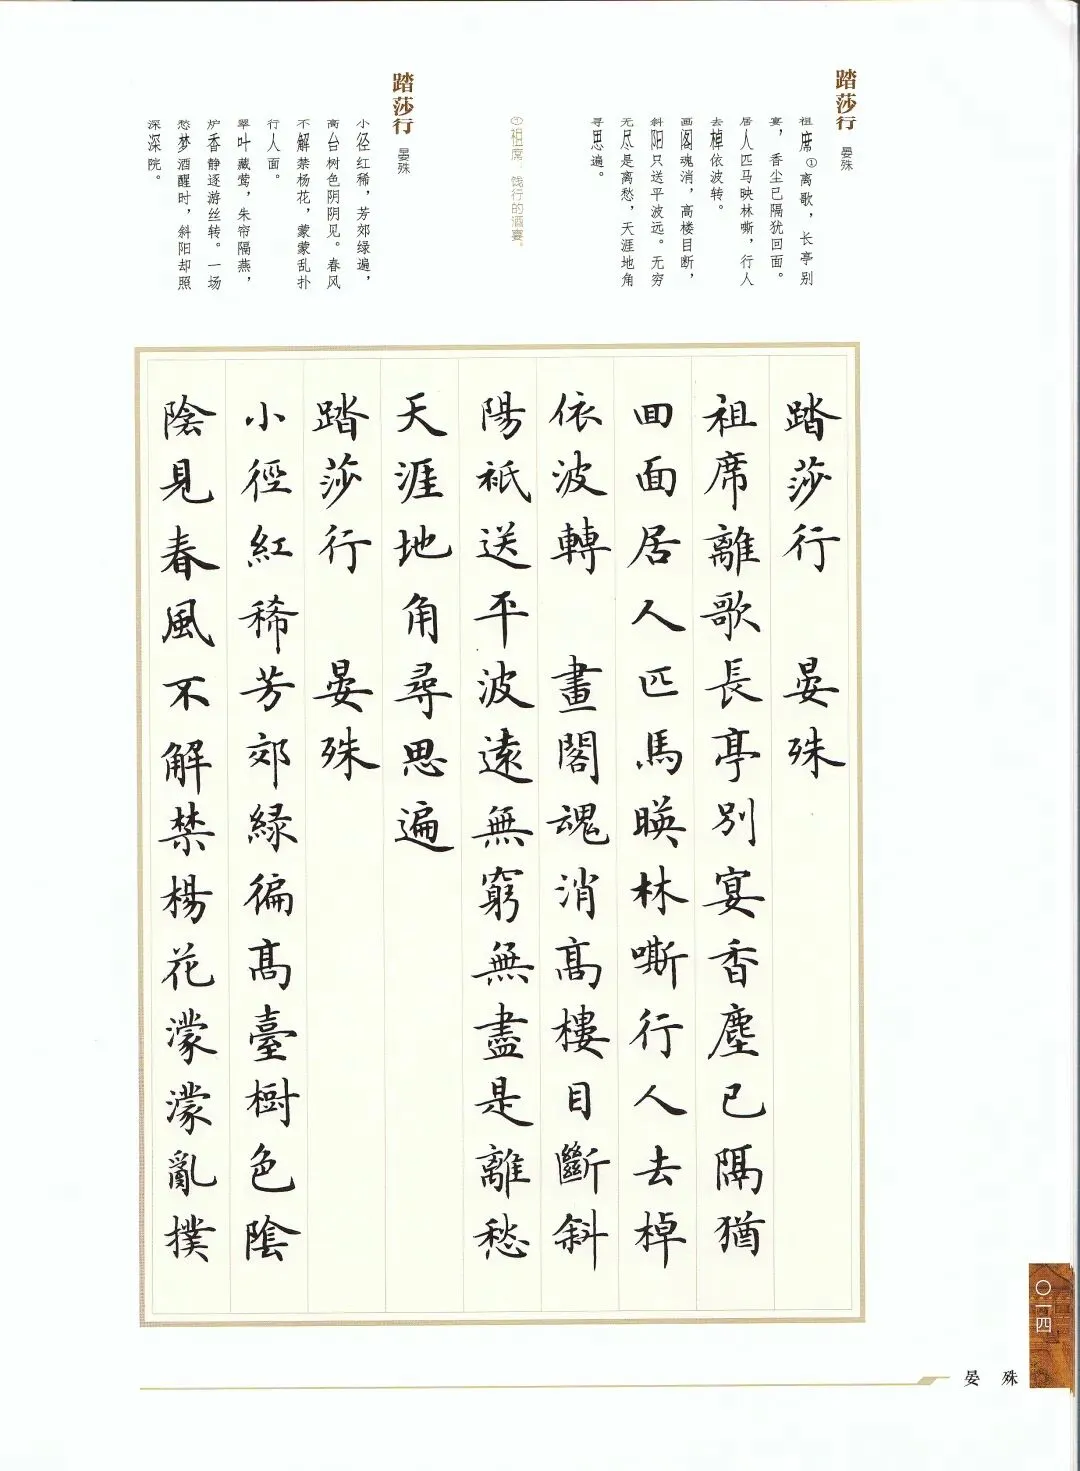 踏莎行 晏殊
祖席①离歌，长亭别
宴，香尘已隔犹回面。
居人匹马映林嘶，行人
去棹依波转。
画阁魂消，高楼目断，
斜阳只送平波远。无穷
无尽是离愁，天涯地角
寻思遍。
①祖席：饯行的酒宴。
踏莎行 晏殊
小径红稀，芳郊绿遍，
高台树色阴阴见。春风
不解禁杨花，蒙蒙乱扑
行人面。
翠叶藏莺，朱帘隔燕，
炉香静逐游丝转。一场
愁梦酒醒时，斜阳却照
深深院。
踏莎行 晏殊
祖席離歌長亭別宴香塵已隔猶
回面居人匹馬暎林嘶行人去棹
依波轉 畫閣魂消高樓目斷斜
陽祇送平波遠無窮無盡是離愁
天涯地角尋思遍
踏莎行 晏殊
小徑紅稀芳郊緑徧高臺樹色陰
陰見春風不解禁楊花濛濛亂撲
〇一四
晏殊